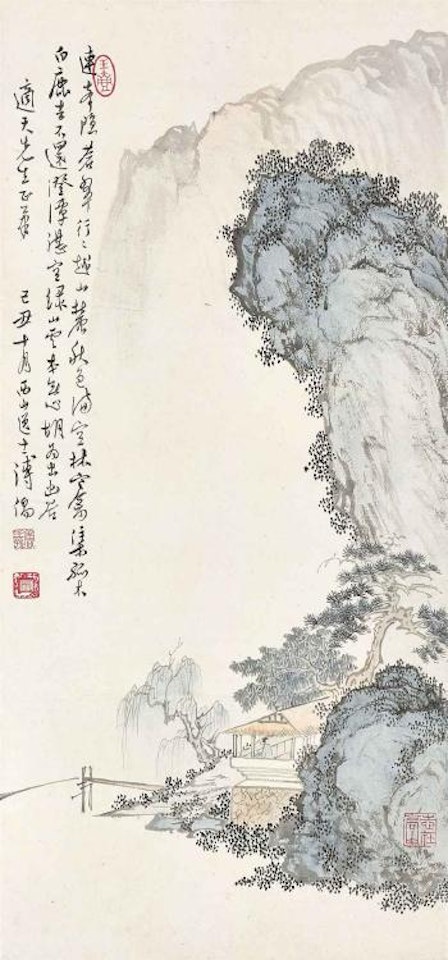 連峯隱蒼翠行〻越山麓秋色滿空林寒禽集孤木
白鹿去不還澄潭湛空綠山雲本無心胡為出幽谷
適天先生正
己丑十月西山逸士溥儒
玉壺
志在高山